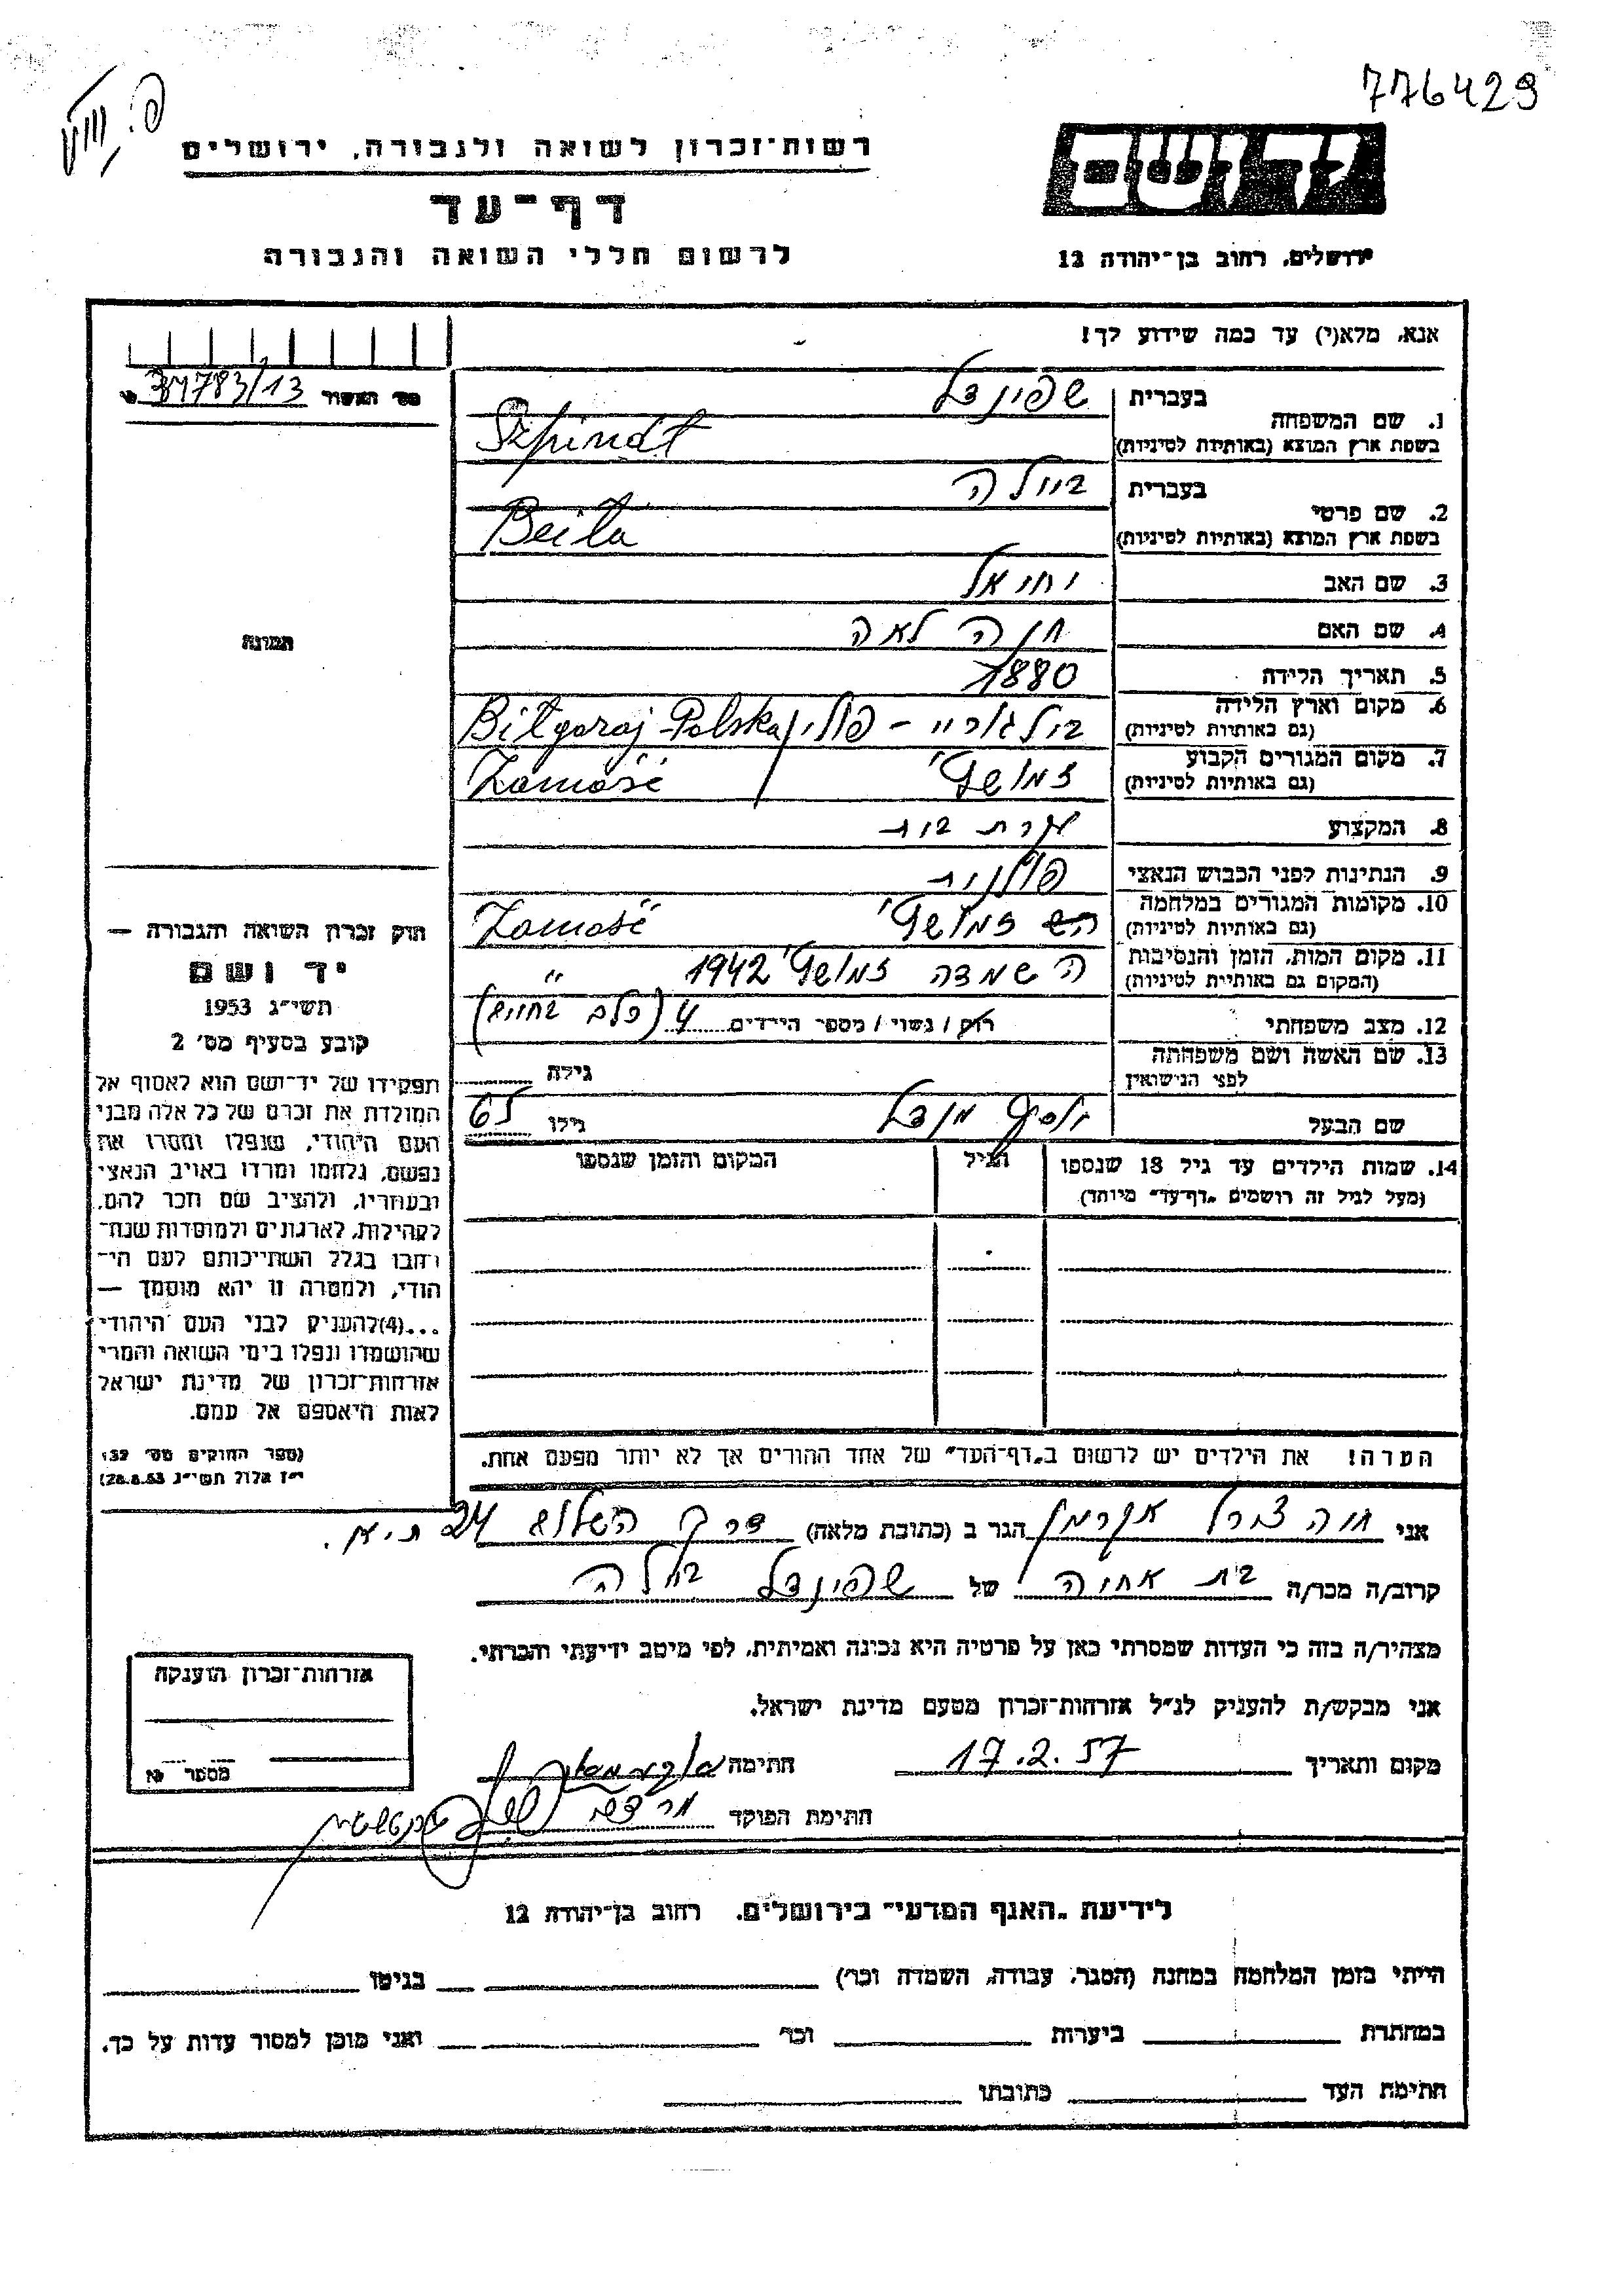 776429
רשות־זכרון לשואה ולגבורה, ירושלים
יד ושם
דף־עד
לרשום חללי השואה והגבורה
ירושלים, רחוב בן־יהודה 12
אנא, מלא(י) עד כמה שידוע לך!
מס' האשור 34783/13
בעברית שפינדל
1. שם המשפחה
בשפת ארץ המוצא (באותיות לטיניות) Szpindł
בעברית ביילה
2. שם פרטי
בשפת ארץ המוצא (באותיות לטיניות) Beiła
3. שם האב יחיאל
4. שם האם חנה לאה
5. תאריך הלידה 1880
6. מקום וארץ הלידה
(גם באותיות לטיניות) בילגוריי - פולין Biłgoraj Polska
7. מקום המגורים הקבוע
(גם באותיות לטיניות) זמושץ' Zamość
8. המקצוע עקרת בית
9. הנתינות לפני הכבוש הנאצי פולנית
10. מקומות המגורים במלחמה
(גם באותיות לטיניות) זמושץ' Zamość
11. מקום המות, הזמן והנסיבות
(המקום גם באותיות לטיניות) השמדה זמושץ' 1942 "
12. מצב משפחתי רווק / נשוי / מספר הילדים 4
13. שם האשה ושם משפחתה
לפני הנישואין
גילה
שם הבעל יוסף מנדל גילו 65
14. שמות הילדים עד גיל 18 שנספו
(מעל לגיל זה רושמים "דף־עד" מיוחד)
הגיל
המקום והזמן שנספו
תמונה
חוק זכרון השואה והגבורה —
יד ושם
תשי"ג 1953
קובע בסעיף מס' 2
תפקידו של יד־ושם הוא לאסוף אל
המולדת את זכרם של כל אלה מבני
העם היהודי, שנפלו ומסרו את
נפשם, נלחמו ומרדו באויב הנאצי
ובעוזריו, ולהציב שם וזכר להם,
לקהילות, לארגונים ולמוסדות שנח־
רבו בגלל השתייכותם לעם הי־
הודי, ולמטרה זו יהא מוסמך —
...(4) להעניק לבני העם היהודי
שהושמדו ונפלו בימי השואה והמרי
אזרחות־זכרון של מדינת ישראל
לאות היאספם אל עמם.
(ספר החוקים מס' 132
י"ז אלול תשי"ג 28.8.53)
הערה! את הילדים יש לרשום ב"דף־העד" של אחד ההורים אך לא יותר מפעם אחת.
אני חוה צירל אקרמן הגר ב (כתובת מלאה) דרך השלום 24 ת.א.
קרוב/ה מכר/ה בת אחיה של שפינדל ביילה
מצהיר/ה בזה כי העדות שמסרתי כאן על פרטיה היא נכונה ואמיתית, לפי מיטב ידיעתי והכרתי.
אני מבקש/ת להעניק לנ"ל אזרחות־זכרון מטעם מדינת ישראל.
מקום ותאריך 17.2.57 חתימה
חתימת הפוקד
אזרחות־זכרון הוענקה
מספר
לידיעת "האגף המדעי" בירושלים, רחוב בן־יהודה 12
הייתי בזמן המלחמה במחנה (הסגר, עבודה, השמדה וכו') בגיטו
במחתרת ביערות וכו' ואני מוכן למסור עדות על כך.
חתימת העד כתובתו